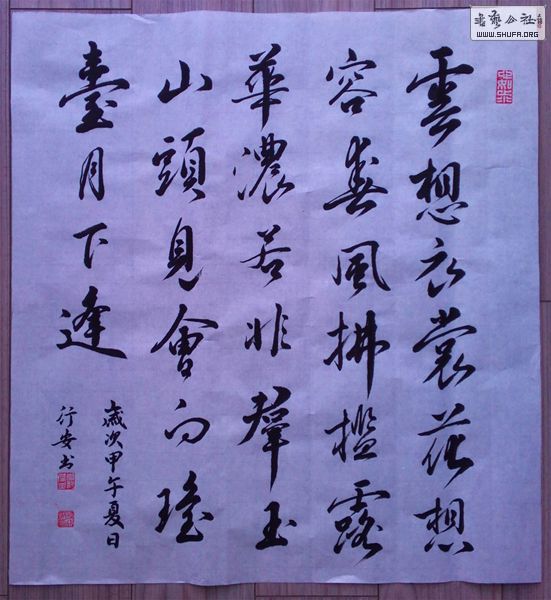 雲想衣裳花想
容春風拂檻露
華濃若非群玉
山頭見會向瑤
臺月下逢
歲次甲午夏日
行安书
书艺公社
WWW.SHUFA.ORG